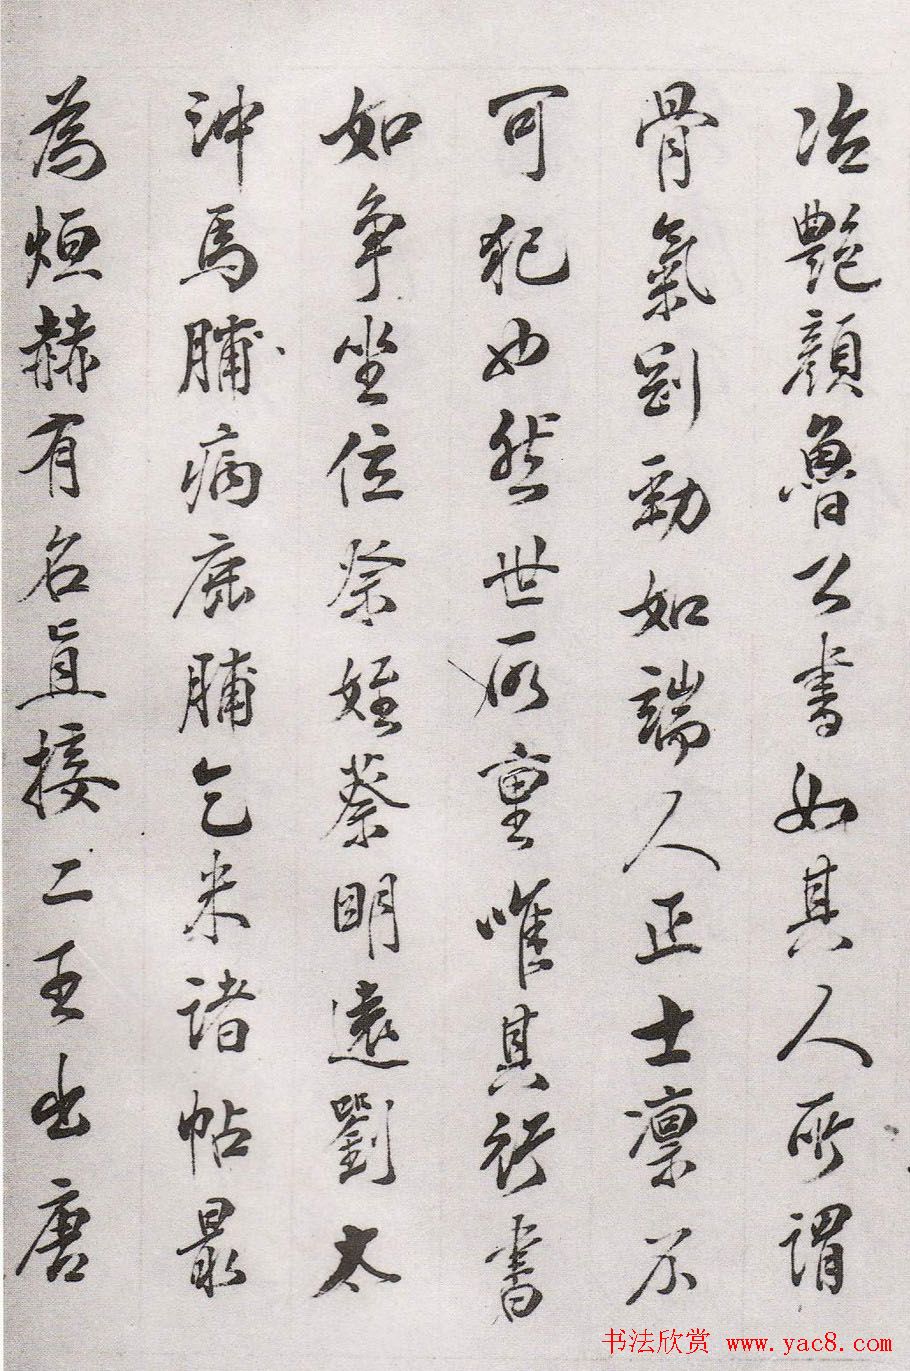 冶艷顏魯公書如其人所謂
骨氣剛勁如端人正士凛不
可犯也然世所重唯其行書
如爭坐位祭姪蔡明遠劉太
沖馬脯病鹿脯乞米諸帖最
為烜赫有名直接二王出唐
书法欣赏 www.yac8.com